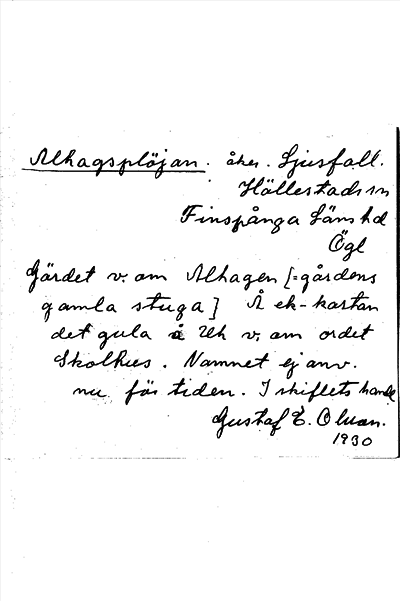 Alhagsplöjan. åker. Ljusfall.
Hällestads sn
Finspånga Läns hd
Ögl
Gärdet v. om Alhagen [=gårdens
gamla stuga] Å ek-kartan
det gula å Uh v. om ordet
Skolhus. Namnet ej anv.
nu för tiden. I skiftets handl
Gustaf E. Olsson.
1930